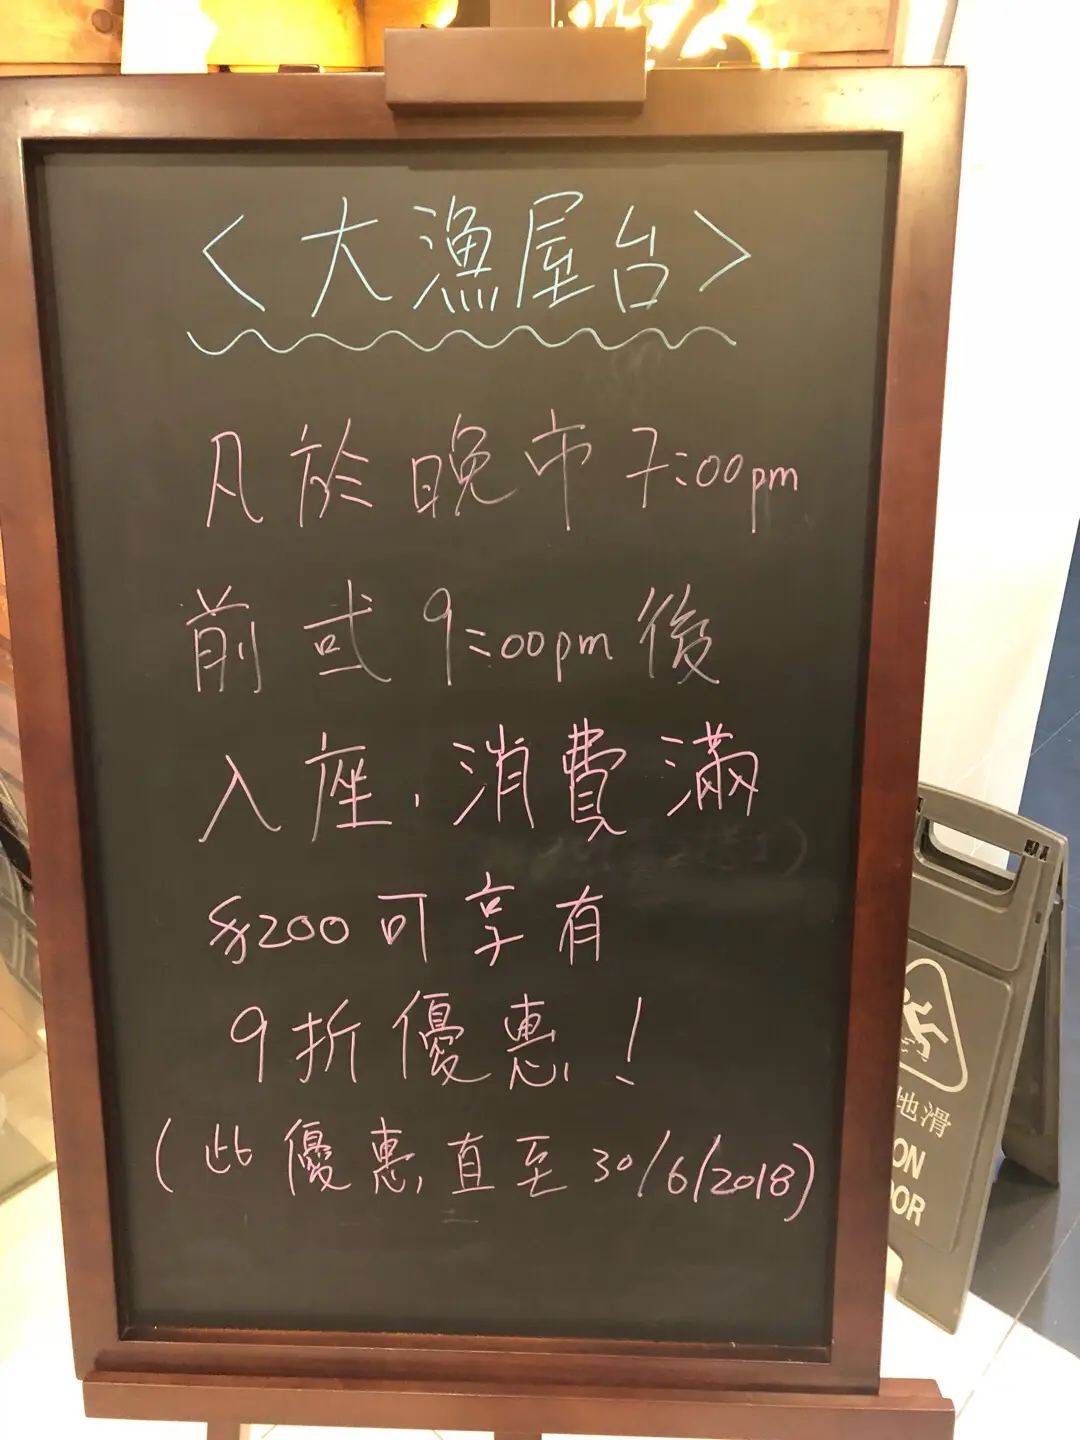 <大漁屋台>
凡於晚市7:00pm
前或9:00pm後
入座，消費滿
$200可享有
9折優惠！
(此優惠直至30/6/2018)
地滑
ON
OR